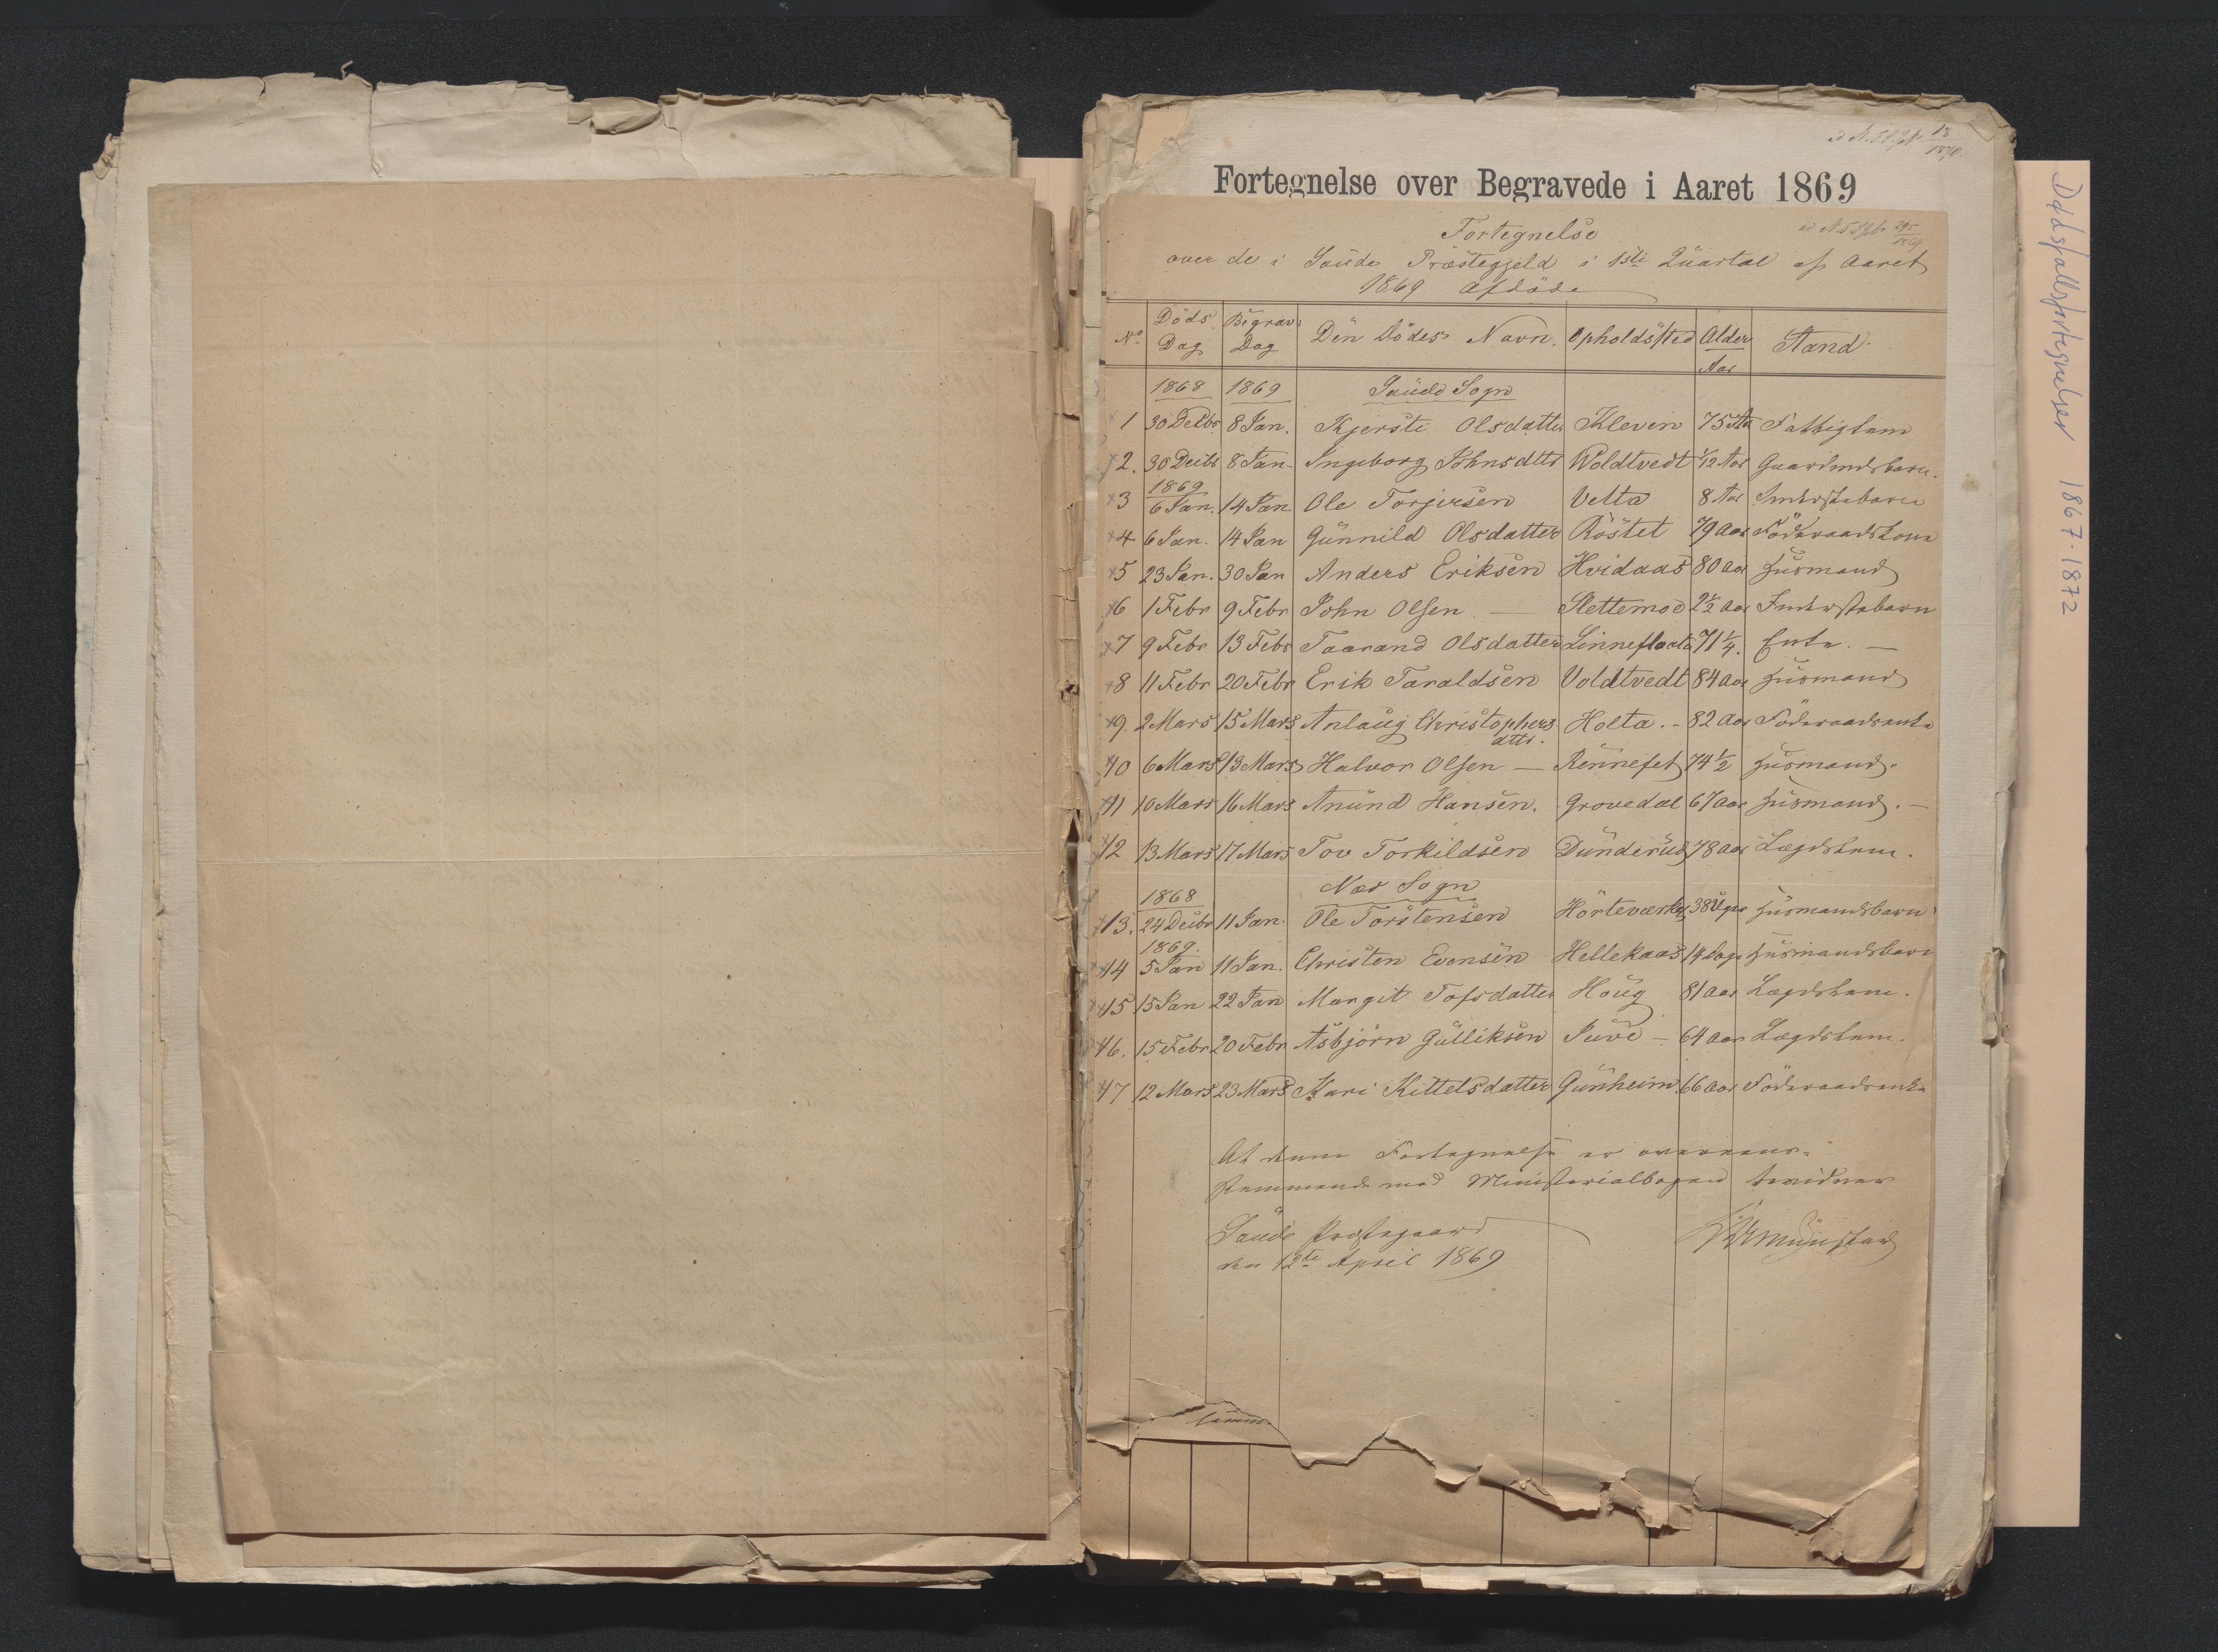 Fortegnelse over Begravede i Aaret 1869
Fortegnelse
over de i Saude Præstegjeld i 1ste Quartal af Aaret
1869 Afdöde
No Döds Dag Begrav: Dag Den Dödes Navn. Opholdssted Alder Aar Stand.
1868 1869 Saude Sogn
1 30 Decbr 8 Jan. Kjersti Olsdatter Kleven 75 Aar Fattiglem
2. 30 Decbr 8 Jan. Ingeborg Johnsdttr Woldtvedt 1/12 Aar Gaardmdsbarn.
1869
3 6 Jan. 14 Jan Ole Torjersen Velta 8 Aar Inderstebarn
4 6 Jan. 14 Jan Gunnild Olsdatter Röstet 79 Aar Föderaadskone
5 23 Jan. 30 Jan Anders Eriksen Hvidaas 80 Aar Husmand
6 1 Febr 9 Febr John Olsen — Slettemoe 2½ Aar Inderstebarn
7 9 Febr 13 Febr Taarand Olsdatter Linneflaata 71¼. Enke. —
8 11 Febr 20 Febr Erik Taraldsen Voldtvedt 84 Aar Husmand
9. 2 Mars 15 Mars Anlaug Christophers
dttr. Holta. - 82 Aar Föderaadsenke
10 6 Mars 13 Mars Halvor Olsen — Rennefet 74½ Husmand.
11 10 Mars 16 Mars Anund Hansen. Grovedal 67 Aar Husmand. —
12 13 Mars 17 Mars Tov Torkildsen Dunderud 78 Aar Lægdslem.
1868 Næs Sogn
13. 24 Decbr 11 Jan. Ole Torstensen Hörteverket 38 Uger Husmandsbarn
1869.
14 5 Jan 11 Jan. Christen Evensen Hellekaas 14 Dage Husmandsbarn
15 15 Jan 22 Jan Margit Tofsdatter Houg 81 Aar Lægdslem.
16. 15 Febr 20 Febr Asbjörn Gulliksen Juve — 64 Aar Lægdslem.
17 12 Mars 23 Mars Kari Kittelsdatter Gunheim 66 Aar Föderaadsenke
At denne Fortegnelse er overeens-
stemmende med Ministerialbogen bevidner
Saude Præstegaard
den 12te April 1869
Münster
Dødsfallsfortegnelser 1867-1872